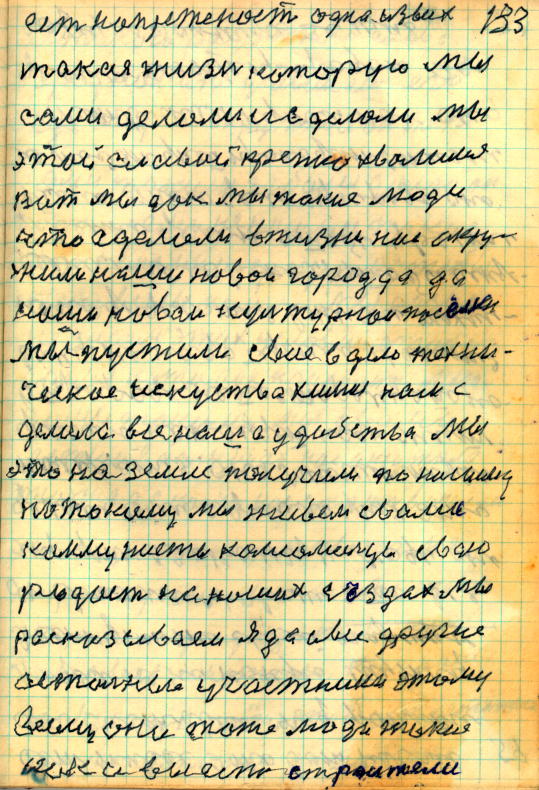 ет напреженост одна из вих 133
такая жизн которую мы
сами делали и сделали мы
этой славой крепко хвалимся
вот мы док мы такие люди
что сделали в жизни нас окру-
жили наши новои город да да
наши новаи културнои посёлки
мы пустили свое в дело техни-
ческое искуства химии нам с
делала все наши а удобства мы
это на земле получили по нашему
по такому мы живем с вами
коммунисты комсомольцы свою
радост на наших сьездах мы
расказываем я да и все другие
остолные участники этому
всему они тоже люди такие
как и вместо строители